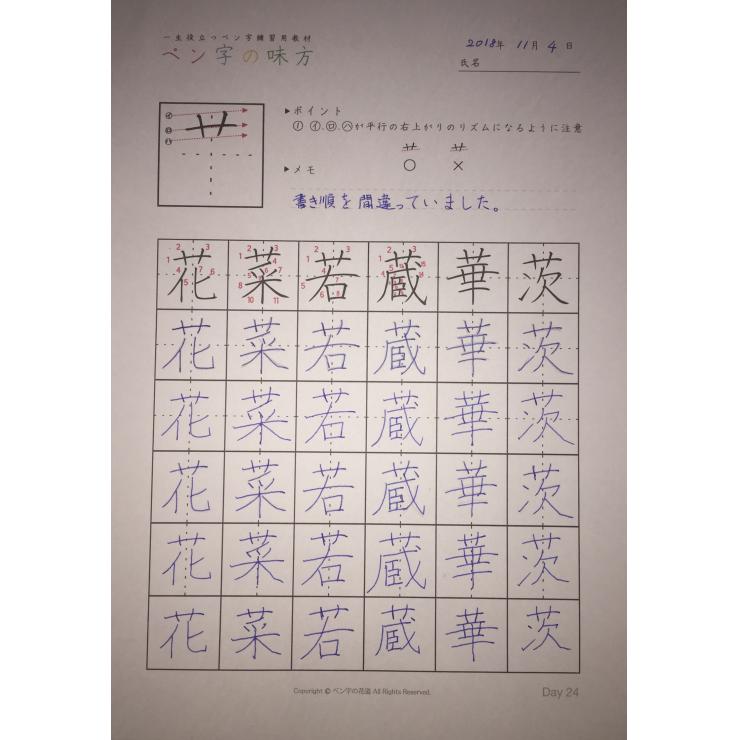 一生役立つペン字練習用教材
ペン字の味方
2018年 11月 4日
氏名
▶ポイント
① ㋑.㋺.㋩が平行の右上がりのリズムになるように注意
㋑
㋺
㋩
艹
艹 艹
○ ×
▶メモ
書き順を間違っていました。
花 菜 若 蔵 華 茨
花 菜 若 蔵 華 茨
花 菜 若 蔵 華 茨
花 菜 若 蔵 華 茨
花 菜 若 蔵 華 茨
花 菜 若 蔵 華 茨
Copyright © ペン字の花道 All Rights Reserved.
Day 24